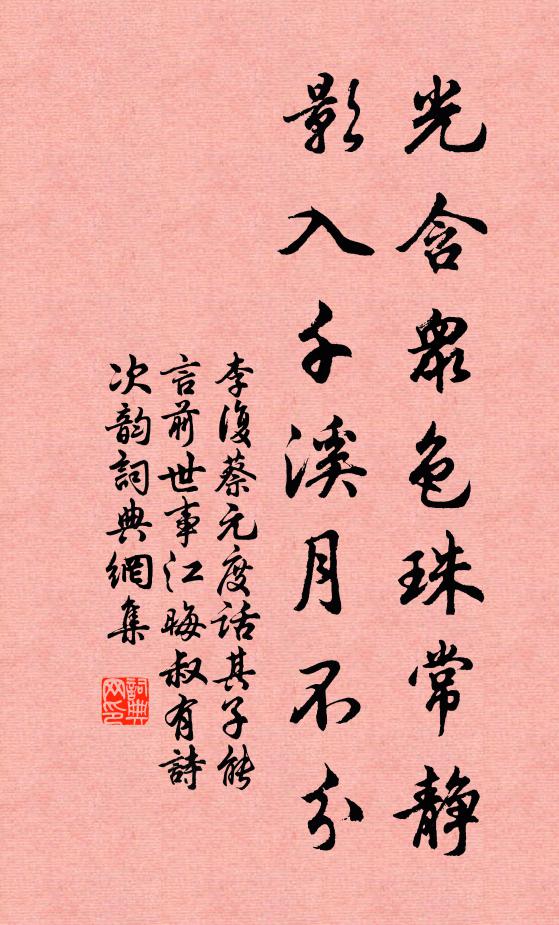 光含眾色珠常静
影入千溪月不分
李復蔡元度話其子能
言前世事江晦叔有詩
次韵詞典網集
詞典网印